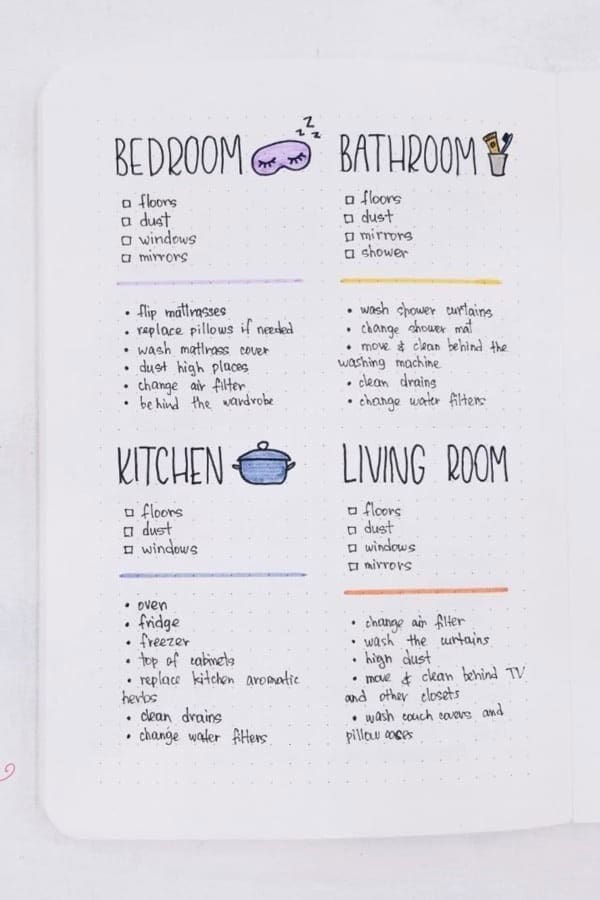 BEDROOM
z z z
floors
dust
windows
mirrors
• flip mattrasses
• replace pillows if needed
• wash mattrass cover
• dust high places
• change air filter
• behind the wardrobe
BATHROOM
floors
dust
mirrors
shower
• wash shower curtains
• change shower mat
• move & clean behind the
washing machine
• clean drains
• change water filters
KITCHEN
floors
dust
windows
• oven
• fridge
• freezer
• top of cabinets
• replace kitchen aromatic
herbs
• clean drains
• change water filters
LIVING ROOM
floors
dust
windows
mirrors
• change air filter
• wash the curtains
• high dust
• move & clean behind TV
and other closets
• wash couch covers and
pillow cases